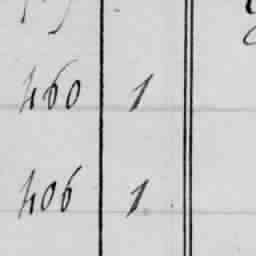 460 1
406 1